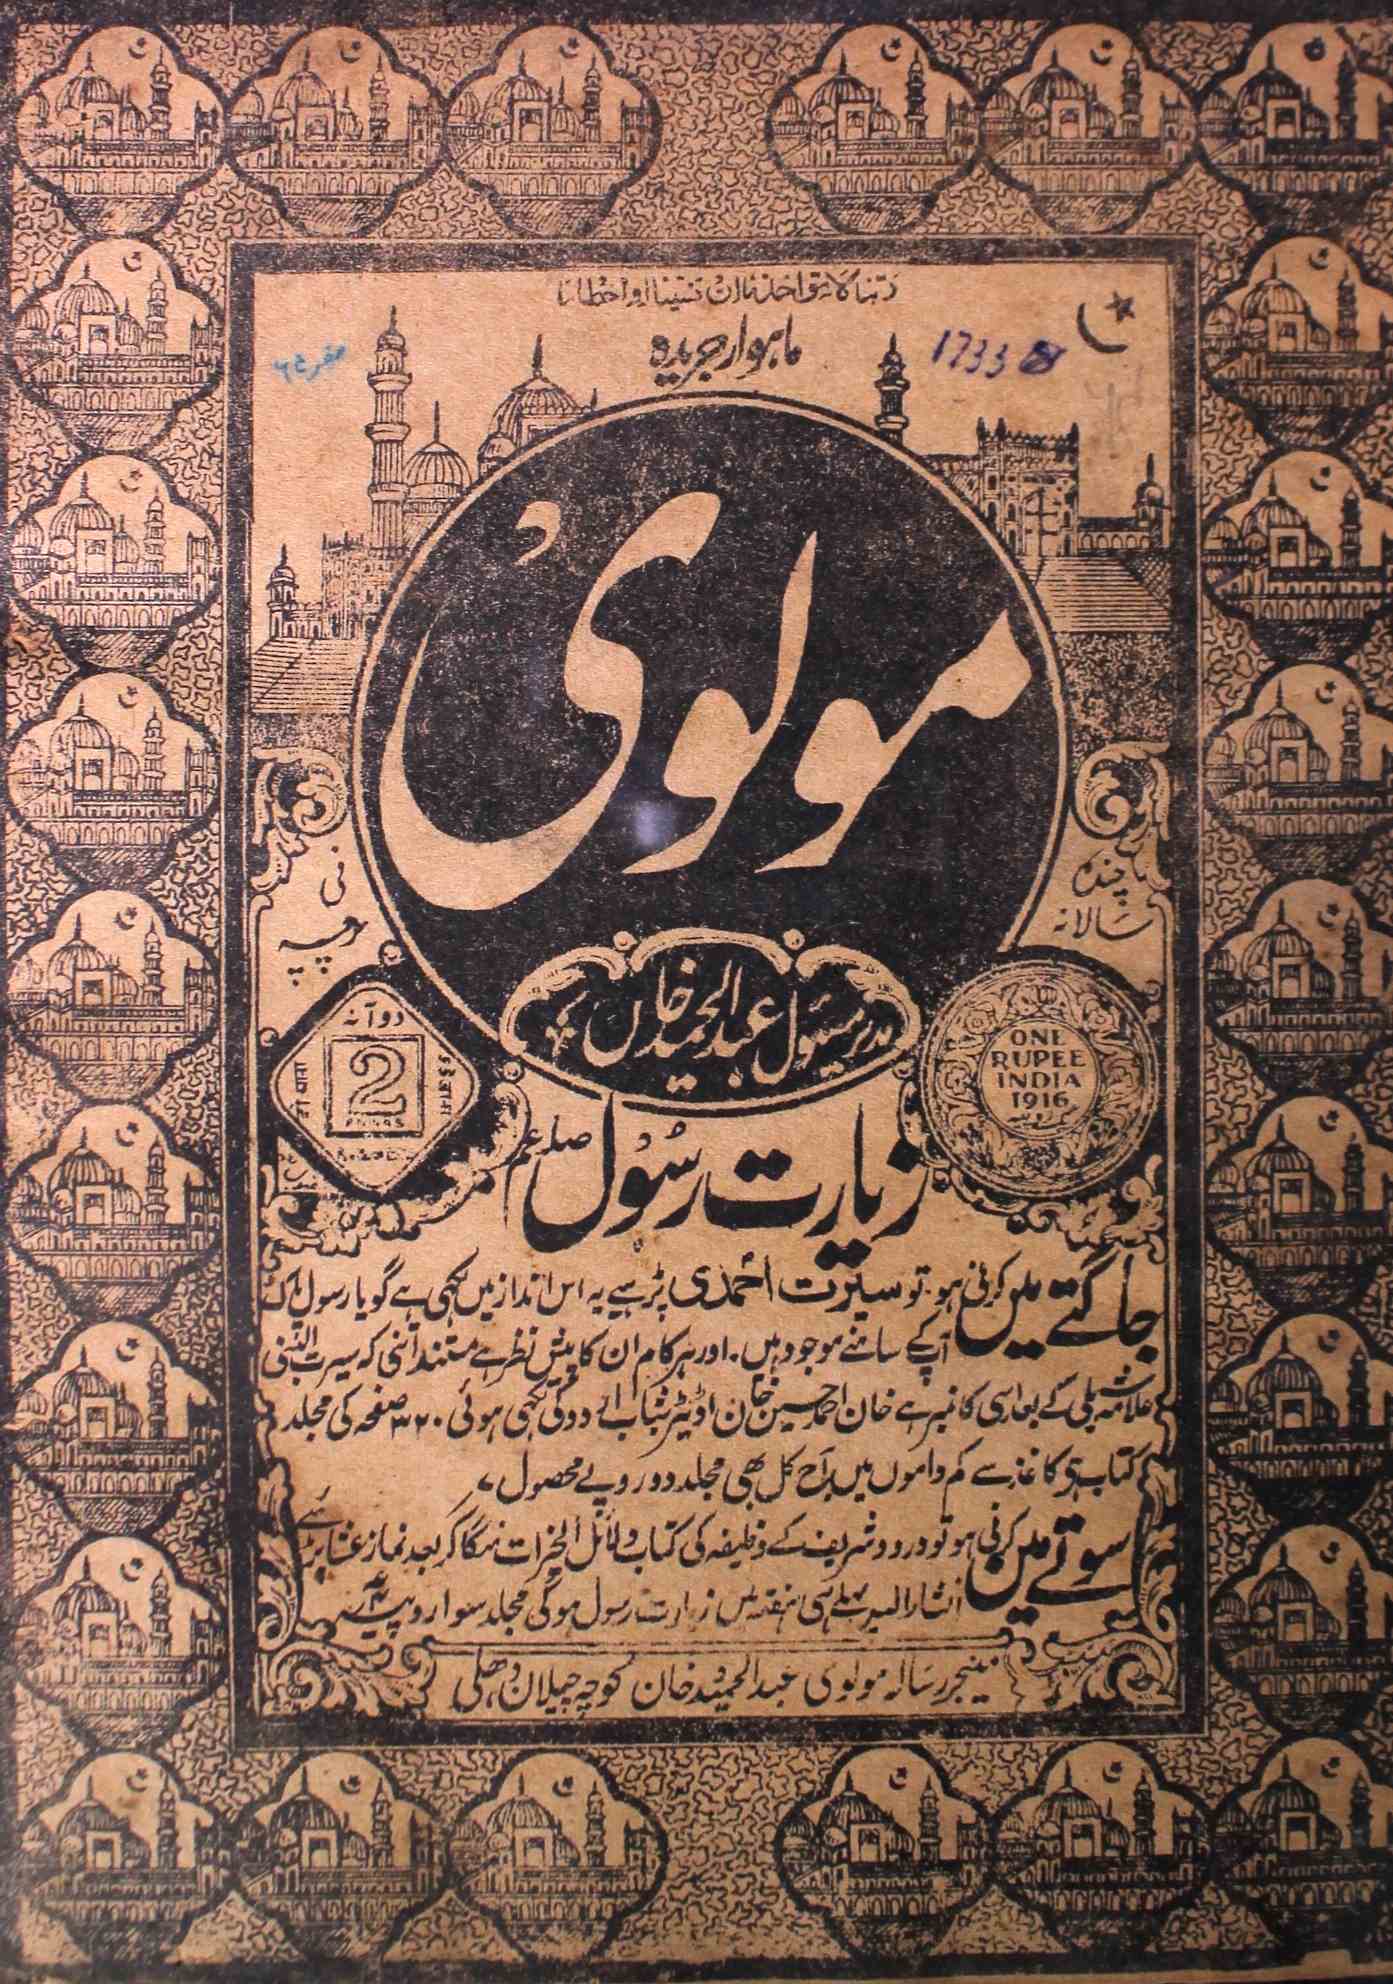 ربنا لا تؤاخذنا ان نسینا او اخطانا
ماہوار جریدہ
صفر ٦٥
1733
مولوی
چندہ سالانہ
فی پرچہ
مدیر مسئول عبدالحمید خاں
دو آنہ
2
ONE
RUPEE
INDIA
1916
زیارت رسول صلعم
جاگتے میں کرنی ہو۔ تو سیرت احمدی پڑھیے یہ اس انداز میں لکھی ہے گویا رسول پاک
آپکے سامنے موجود ہیں۔ اور ہر کام ان کا پیش نظر ہے مستند اتنی کہ سیرت النبی
علامہ شبلی کے بعد اسی کا نمبر ہے خان احمد حسین خان اڈیٹر شباب اردو کی لکھی ہوئی ۳۲۰ صفحہ کی مجلد
کتاب ردی کاغذ سے کم داموں میں۔ آج کل بھی مجلد دو روپے محصول
سوتے میں کرنی ہو تو درود شریف کے وظیفہ کی کتاب دلائل الخیرات منگا کر بعد نماز عشا پڑھیے
انشاء اللہ پہلے ہی ہفتہ میں زیارت رسول ہوگی مجلد سوا روپیہ
مینیجر رسالہ مولوی عبدالحمید خان کوچہ چیلان دھلی